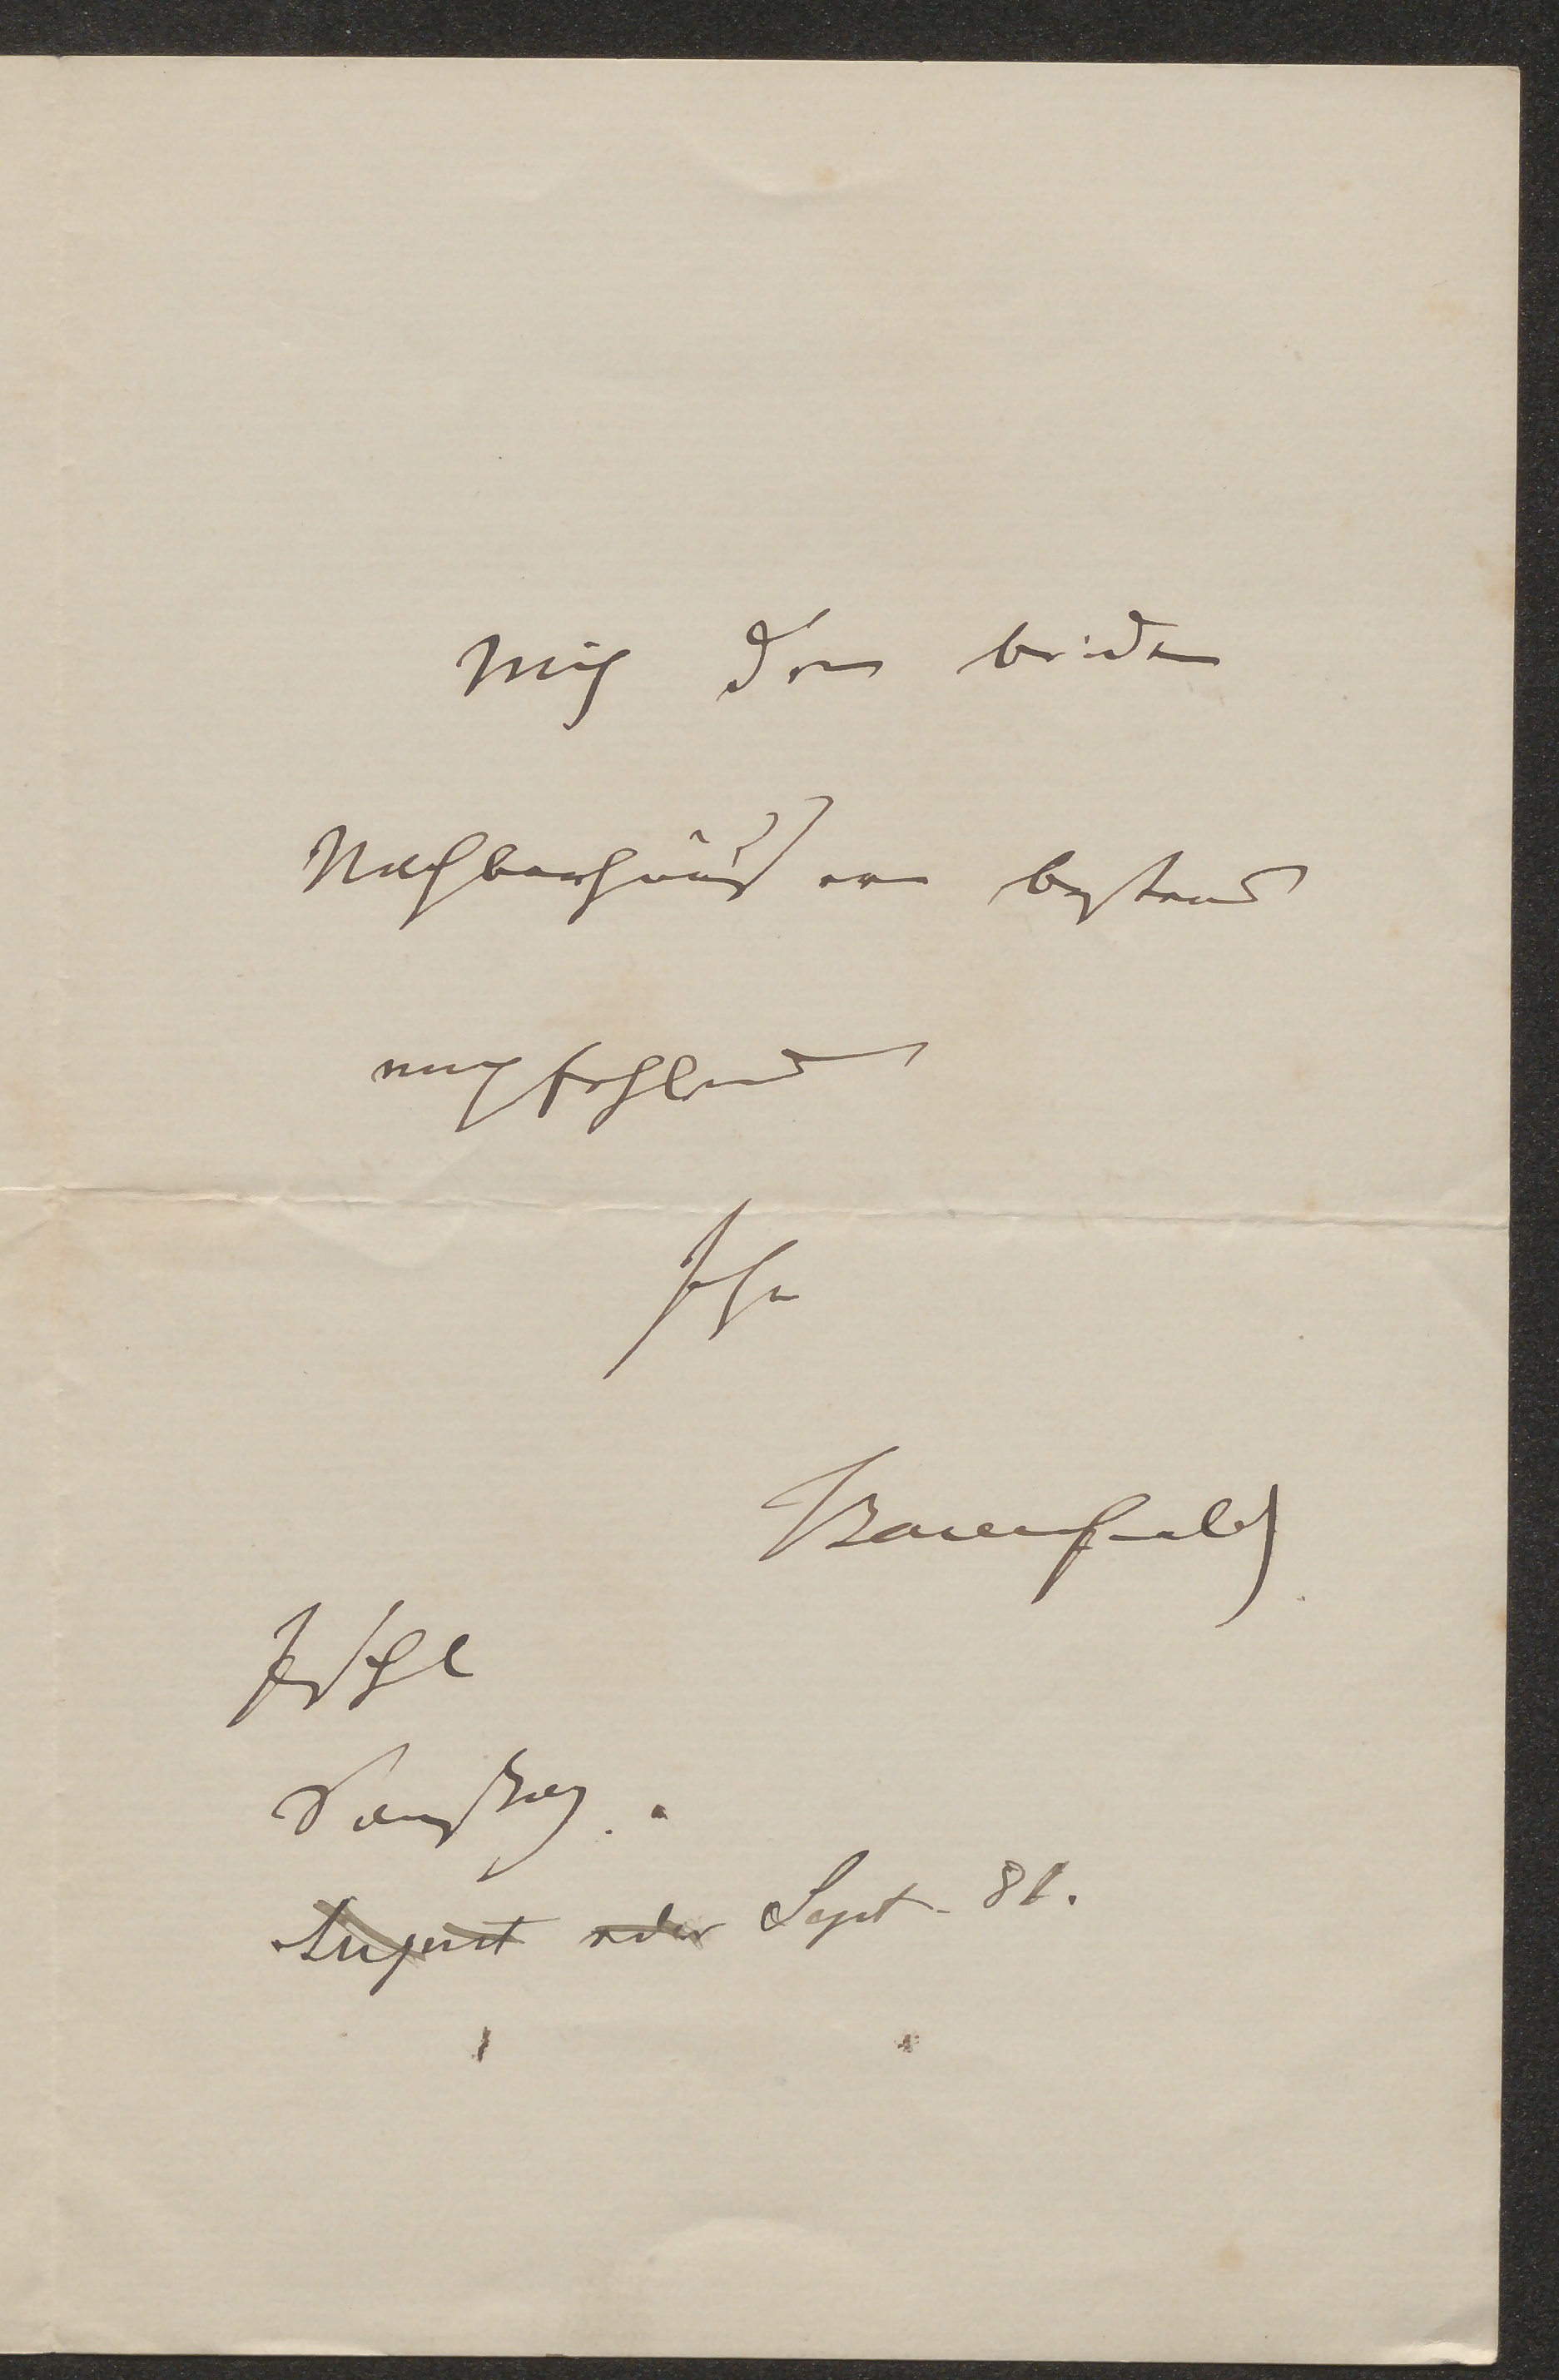 Mich den beiden
Nachbarhäusern bestens
empfehlend
Ihr
Bauernfeld
Ischl
Samstag.
August oder Sept. 81.